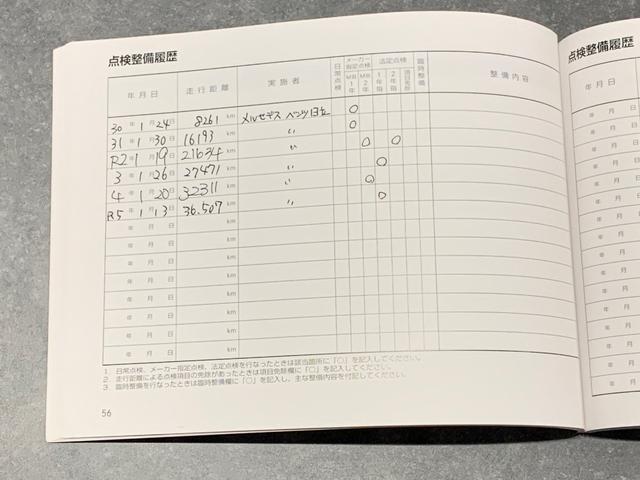 点検整備履歴
年月日 走行距離 実施者 日常点検 メーカー指定点検 MB1年 MB2年 法定点検 1年毎 2年毎 臨時整備 整備内容
30年1月24日 8261km メルセデス ベンツ日立 ○
31年1月30日 16193km 〃 ○
R2年1月19日 21634km 〃 ○ ○
3年1月26日 27471km 〃 ○
4年1月20日 32311km 〃 ○
R5年1月13日 36.507km 〃 ○
年月日 km
年月日 km
年月日 km
年月日 km
年月日 km
年月日 km
年月日 km
1 日常点検、メーカー指定点検、法定点検を行なったときは該当箇所に「○」を記入してください。
2 走行距離による点検項目の免除があったときは項目免除欄に「○」を記入してください。
3 臨時整備を行なったときは臨時整備欄に「○」を記入し、主な整備内容を付記してください。
56
点検整備履歴
年月日
年月
年月
年月
年月
年月
年月
年月
年月
年月
年月
年月
年月